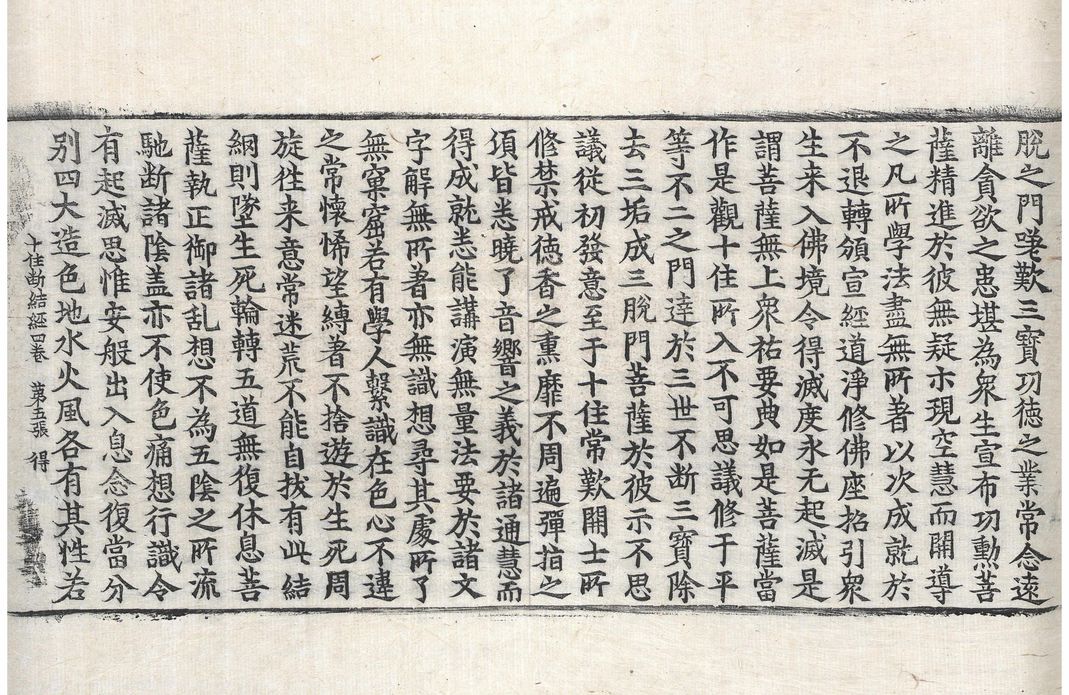 脫之門嗟歎三寶功德之業常念遠
離貪欲之患堪為衆生宣布功勲菩
薩精進於彼無疑亦現空慧而開導
之凡所學法盡無所著以次成就於
不退轉頒宣經道淨修佛座招引衆
生来入佛境令得滅度永无起滅是
謂菩薩無上衆祐要典如是菩薩當
作是觀十住所入不可思議修于平
等不二之門達於三世不断三寶除
去三垢成三脫門菩薩於彼示不思
議從初發意至于十住常歎開士所
修禁戒德香之熏靡不周遍彈指之
頃皆悉曉了音響之義於諸通慧而
得成就悉能講演無量法要於諸文
字解無所著亦無識想尋其處所了
無窠窟若有學人繫識在色心不違
之常懷悕望縛著不捨遊於生死周
旋徃来意常迷荒不能自拔有此結
網則墜生死輪轉五道無復休息菩
薩執正御諸乱想不為五陰之所流
馳断諸陰盖亦不使色痛想行識令
有起滅思惟安般出入息念復當分
別四大造色地水火風各有其性若
十住断結經四卷 第五張 得